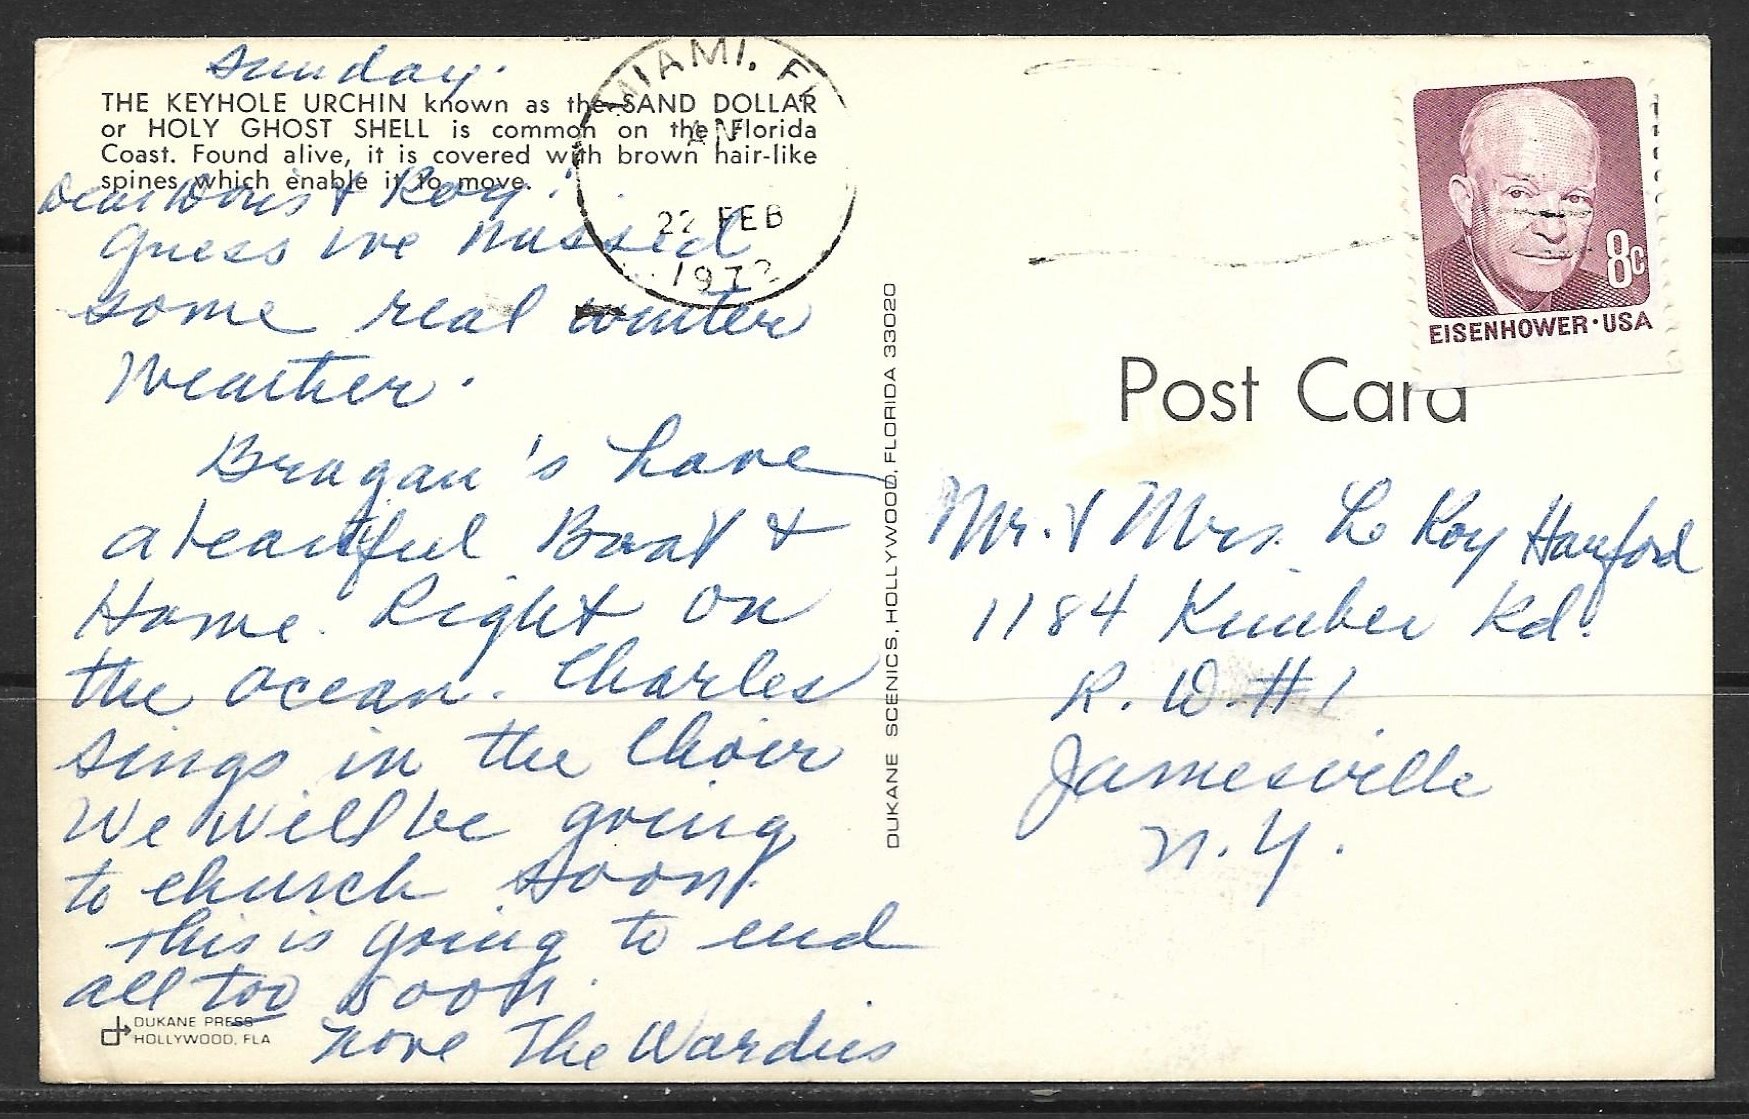 Sunday.
THE KEYHOLE URCHIN known as the SAND DOLLAR
or HOLY GHOST SHELL is common on the Florida
Coast. Found alive, it is covered with brown hair-like
spines which enable it to move.
Dear Doris & Roy!
Guess we missed
some real winter
Weather.
Bragan's have
a beautiful Boat &
Home. Right on
the ocean. Charles
sings in the Choir
We will be going
to church soon.
This is going to end
all too soon.
Love The Wardies
DUKANE PRESS
HOLLYWOOD, FLA
DUKANE SCENICS, HOLLYWOOD, FLORIDA 33020
MIAMI, FL
22 FEB
1972
8c
EISENHOWER·USA
Post Card
Mr. & Mrs. Le Roy Hanford
1184 Kimber Rd.
R. D. #1
Jamesville
N.Y.